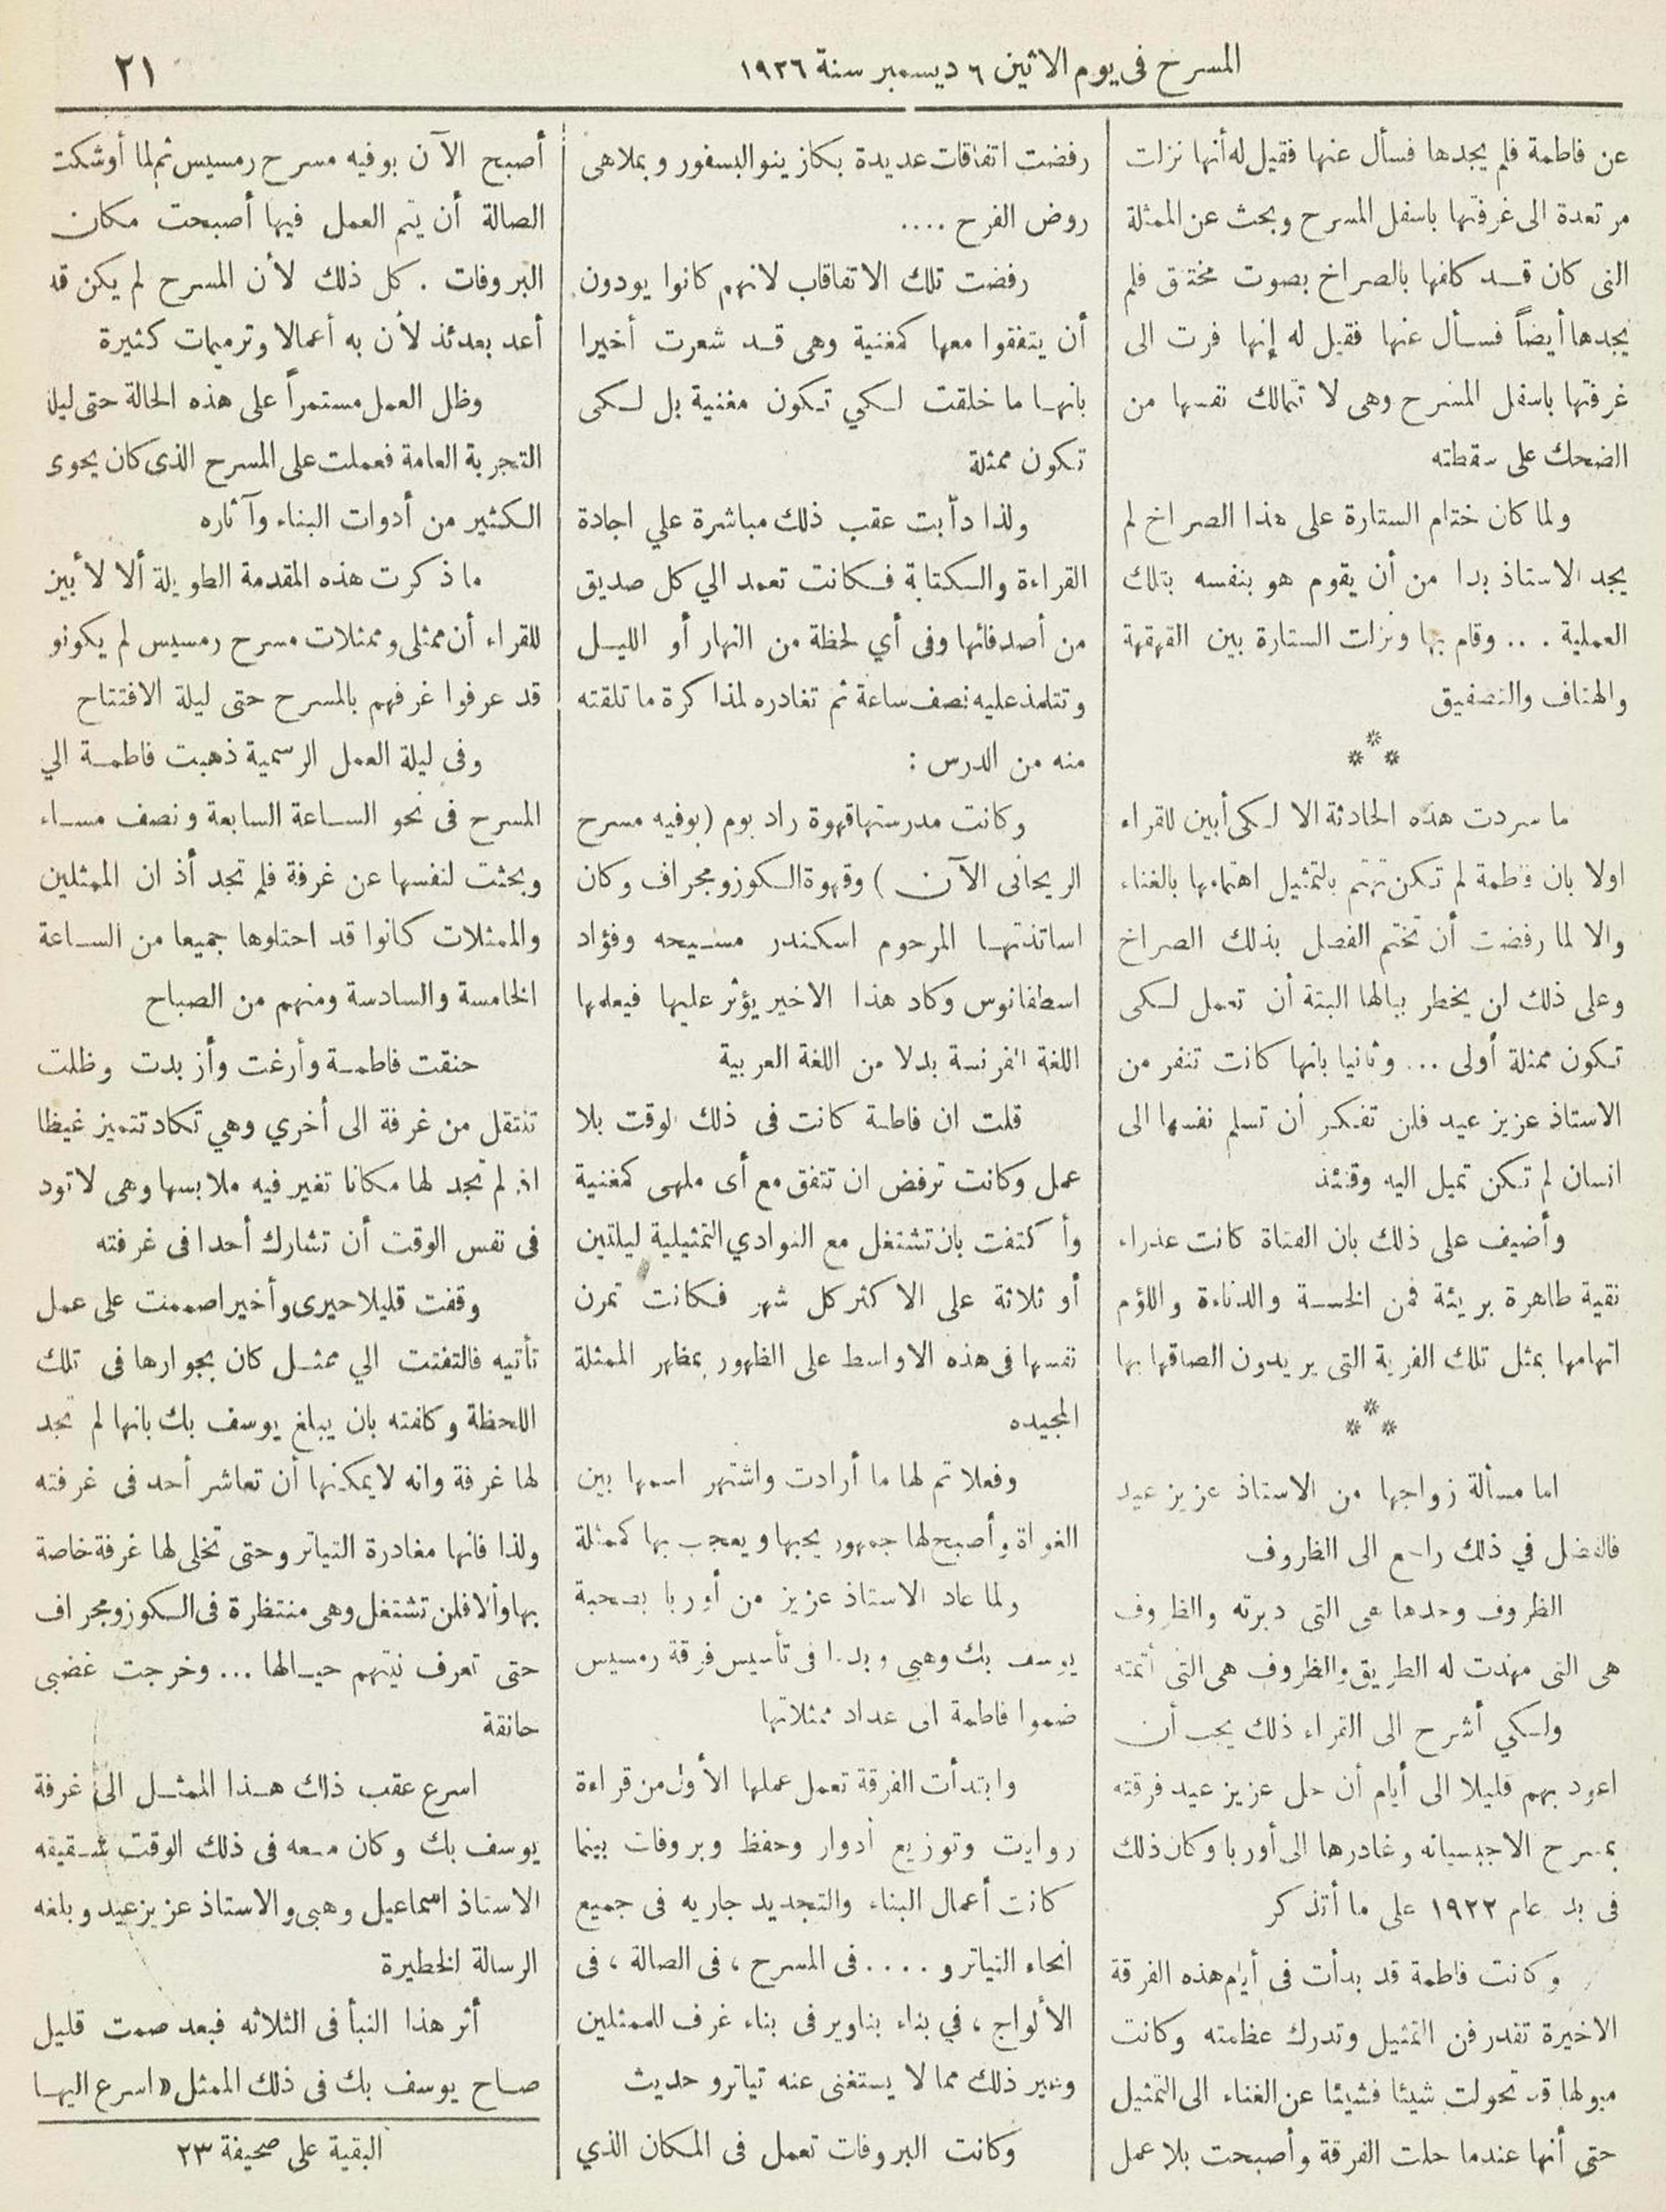 المسرح فى يوم الاثنين ٦ ديسمبر سنة ١٩٢٦
٢١
عن فاطمة فلم يجدها فسأل عنها فقيل له أنها نزلت
مرتعدة الى غرفتها باسفل المسرح وبحث عن الممثلة
التى كان قد كلفها بالصراخ بصوت مختنق فلم
يجدها أيضاً فسأل عنها فقيل له إنها فرت الى
غرفتها باسفل المسرح وهى لا تتمالك نفسها من
الضحك على سقطته
ولما كان ختام الستارة على هذا الصراخ لم
يجد الاستاذ بدا من أن يقوم هو بنفسه بتلك
العملية . .. وقام بها ونزلت الستارة بين القهقهة
والهتاف والتصفيق
***
ما سردت هذه الحادثة الا لكى أبين للقراء
اولا بان فاطمة لم تكن تهتم بالتمثيل اهتمامها بالغناء
والا لما رفضت أن تختم الفصل بذلك الصراخ
وعلى ذلك لن يخطر ببالها البتة أن تعمل لكى
تكون ممثلة أولى ... وثانيا بانها كانت تنفر من
الاستاذ عزيز عيد فلن تفكر أن تسلم نفسها الى
انسان لم تكن تميل اليه وقتئذ
وأضيف على ذلك بان الفتاة كانت عذراء
نقية طاهرة بريئة فمن الخسة والدناءة واللؤم
اتهامها بمثل تلك الفرية التى يريدون الصاقها بها
***
اما مسألة زواجها من الاستاذ عزيز عيد
فالفضل في ذلك راجع الى الظروف
الظروف وحدها هى التى دبرته والظروف
هى التى مهدت له الطريق والظروف هى التى أتمته
ولكي أشرح الى القراء ذلك يجب أن
اعود بهم قليلا الى أيام أن حل عزيز عيد فرقته
بمسرح الاجبسيانه وغادرها الى أوربا وكان ذلك
فى بدء عام ١٩٢٢ على ما أتذكر
وكانت فاطمة قد بدأت فى أيام هذه الفرقة
الاخيرة تقدر فن التمثيل وتدرك عظمته وكانت
ميولها قد تحولت شيئا فشيئا عن الغناء الى التمثيل
حتى أنها عندما حلت الفرقة وأصبحت بلا عمل
رفضت اتفاقات عديدة بكازينو البسفور وبملاهى
روض الفرح ....
رفضت تلك الاتفاقاب لانهم كانوا يودون
أن يتفقوا معها كمغنية وهى قد شعرت أخيرا
بانها ما خلقت لكي تكون مغنية بل لكى
تكون ممثلة
ولذا دأبت عقب ذلك مباشرة علي اجادة
القراءة والكتابة فكانت تعمد الي كل صديق
من أصدقائها وفى أي لحظة من النهار أو الليل
وتتلمذ عليه نصف ساعة ثم تغادره لمذاكرة ما تلقته
منه من الدرس :
وكانت مدرستها قهوة راديوم (بوفيه مسرح
الريحانى الآن ) وقهوة الكوزومجراف وكان
اساتذتها المرحوم اسكندر مسيحه وفؤاد
اسطفانوس وكاد هذا الاخير يؤثر عليها فيعلمها
اللغة الفرنسة بدلا من اللغة العربية
قلت ان فاطمة كانت فى ذلك الوقت بلا
عمل وكانت ترفض ان تتفق مع أى ملهى كمغنية
وأكتفت بان تشتغل مع النوادي التمثيلية ليلتين
أو ثلاثة على الاكثر كل شهر فكانت تمرن
نفسها فى هذه الاواسط على الظهور بمظهر الممثلة
المجيده
وفعلا تم لها ما أرادت واشتهر اسمها بين
الغواة وأصبح لها جمهور يحبها ويعجب بها كممثلة
ولما عاد الاستاذ عزيز من أوربا بصحبة
يوسف بك وهبي وبدءا فى تأسيس فرقة رمسيس
ضموا فاطمة الى عداد ممثلاتها
وابتدأت الفرقة تعمل عملها الأول من قراءة
روايت وتوزيع أدوار وحفظ وبروفات بينما
كانت أعمال البناء والتجديد جاريه فى جميع
انحاء التياترو .... فى المسرح ، فى الصالة ، فى
الألواج ، في بناء بناوير فى بناء غرف للممثلين
وغير ذلك مما لا يستغنى عنه تياترو حديث
وكانت البروفات تعمل فى المكان الذي
أصبح الآن بوفيه مسرح رمسيس ثم لما أوشكت
الصالة أن يتم العمل فيها أصبحت مكان
البروفات . كل ذلك لأن المسرح لم يكن قد
أعد بعدئذ لأن به أعمالا وترميمات كثيرة
وظل العمل مستمراً على هذه الحالة حتى ليلة
التجربة العامة فعملت على المسرح الذى كان يحوى
الكثير من أدوات البناء وآثاره
ما ذكرت هذه المقدمة الطويلة ألا لأبين
للقراء أن ممثلى وممثلات مسرح رمسيس لم يكونو
قد عرفوا غرفهم بالمسرح حتى ليلة الافتتاح
وفى ليلة العمل الرسمية ذهبت فاطمة الي
المسرح فى نحو الساعة السابعة ونصف مساء
وبحثت لنفسها عن غرفة فلم تجد أذ ان الممثلين
والممثلات كانوا قد احتلوها جميعا من الساعة
الخامسة والسادسة ومنهم من الصباح
حنقت فاطمة وأرغت وأزبدت وظلت
تنتقل من غرفة الى أخري وهي تكاد تتميز غيظا
اذ لم تجد لها مكانا تغير فيه ملابسها وهى لا تود
فى نفس الوقت أن تشارك أحدا فى غرفته
وقفت قليلا حيرى وأخيرا صممت على عمل
تأتيه فالتفتت الي ممثل كان بجوارها فى تلك
اللحظة وكلفته بان يبلغ يوسف بك بانها لم تجد
لها غرفة وانه لا يمكنها أن تعاشر أحد فى غرفته
ولذا فانها مغادرة التياتر وحتى تخلى لها غرفة خاصة
بها وألا فلن تشتغل وهى منتظرة فى الكوزومجراف
حتى تعرف نيتهم حيالها ... وخرجت غضبى
حانقة
اسرع عقب ذلك هذا الممثل الى غرفة
يوسف بك وكان معه فى ذلك الوقت شقيقه
الاستاذ اسماعيل وهبى والاستاذ عزيز عيد وبلغه
الرسالة الخطيرة
أثر هذا النبأ فى الثلاثه فبعد صمت قليل
صاح يوسف بك فى ذلك الممثل « اسرع اليها
البقية على صحيفة ٢٣